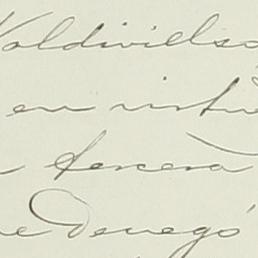 Valdivielso
en virtud
tercera
Denegó